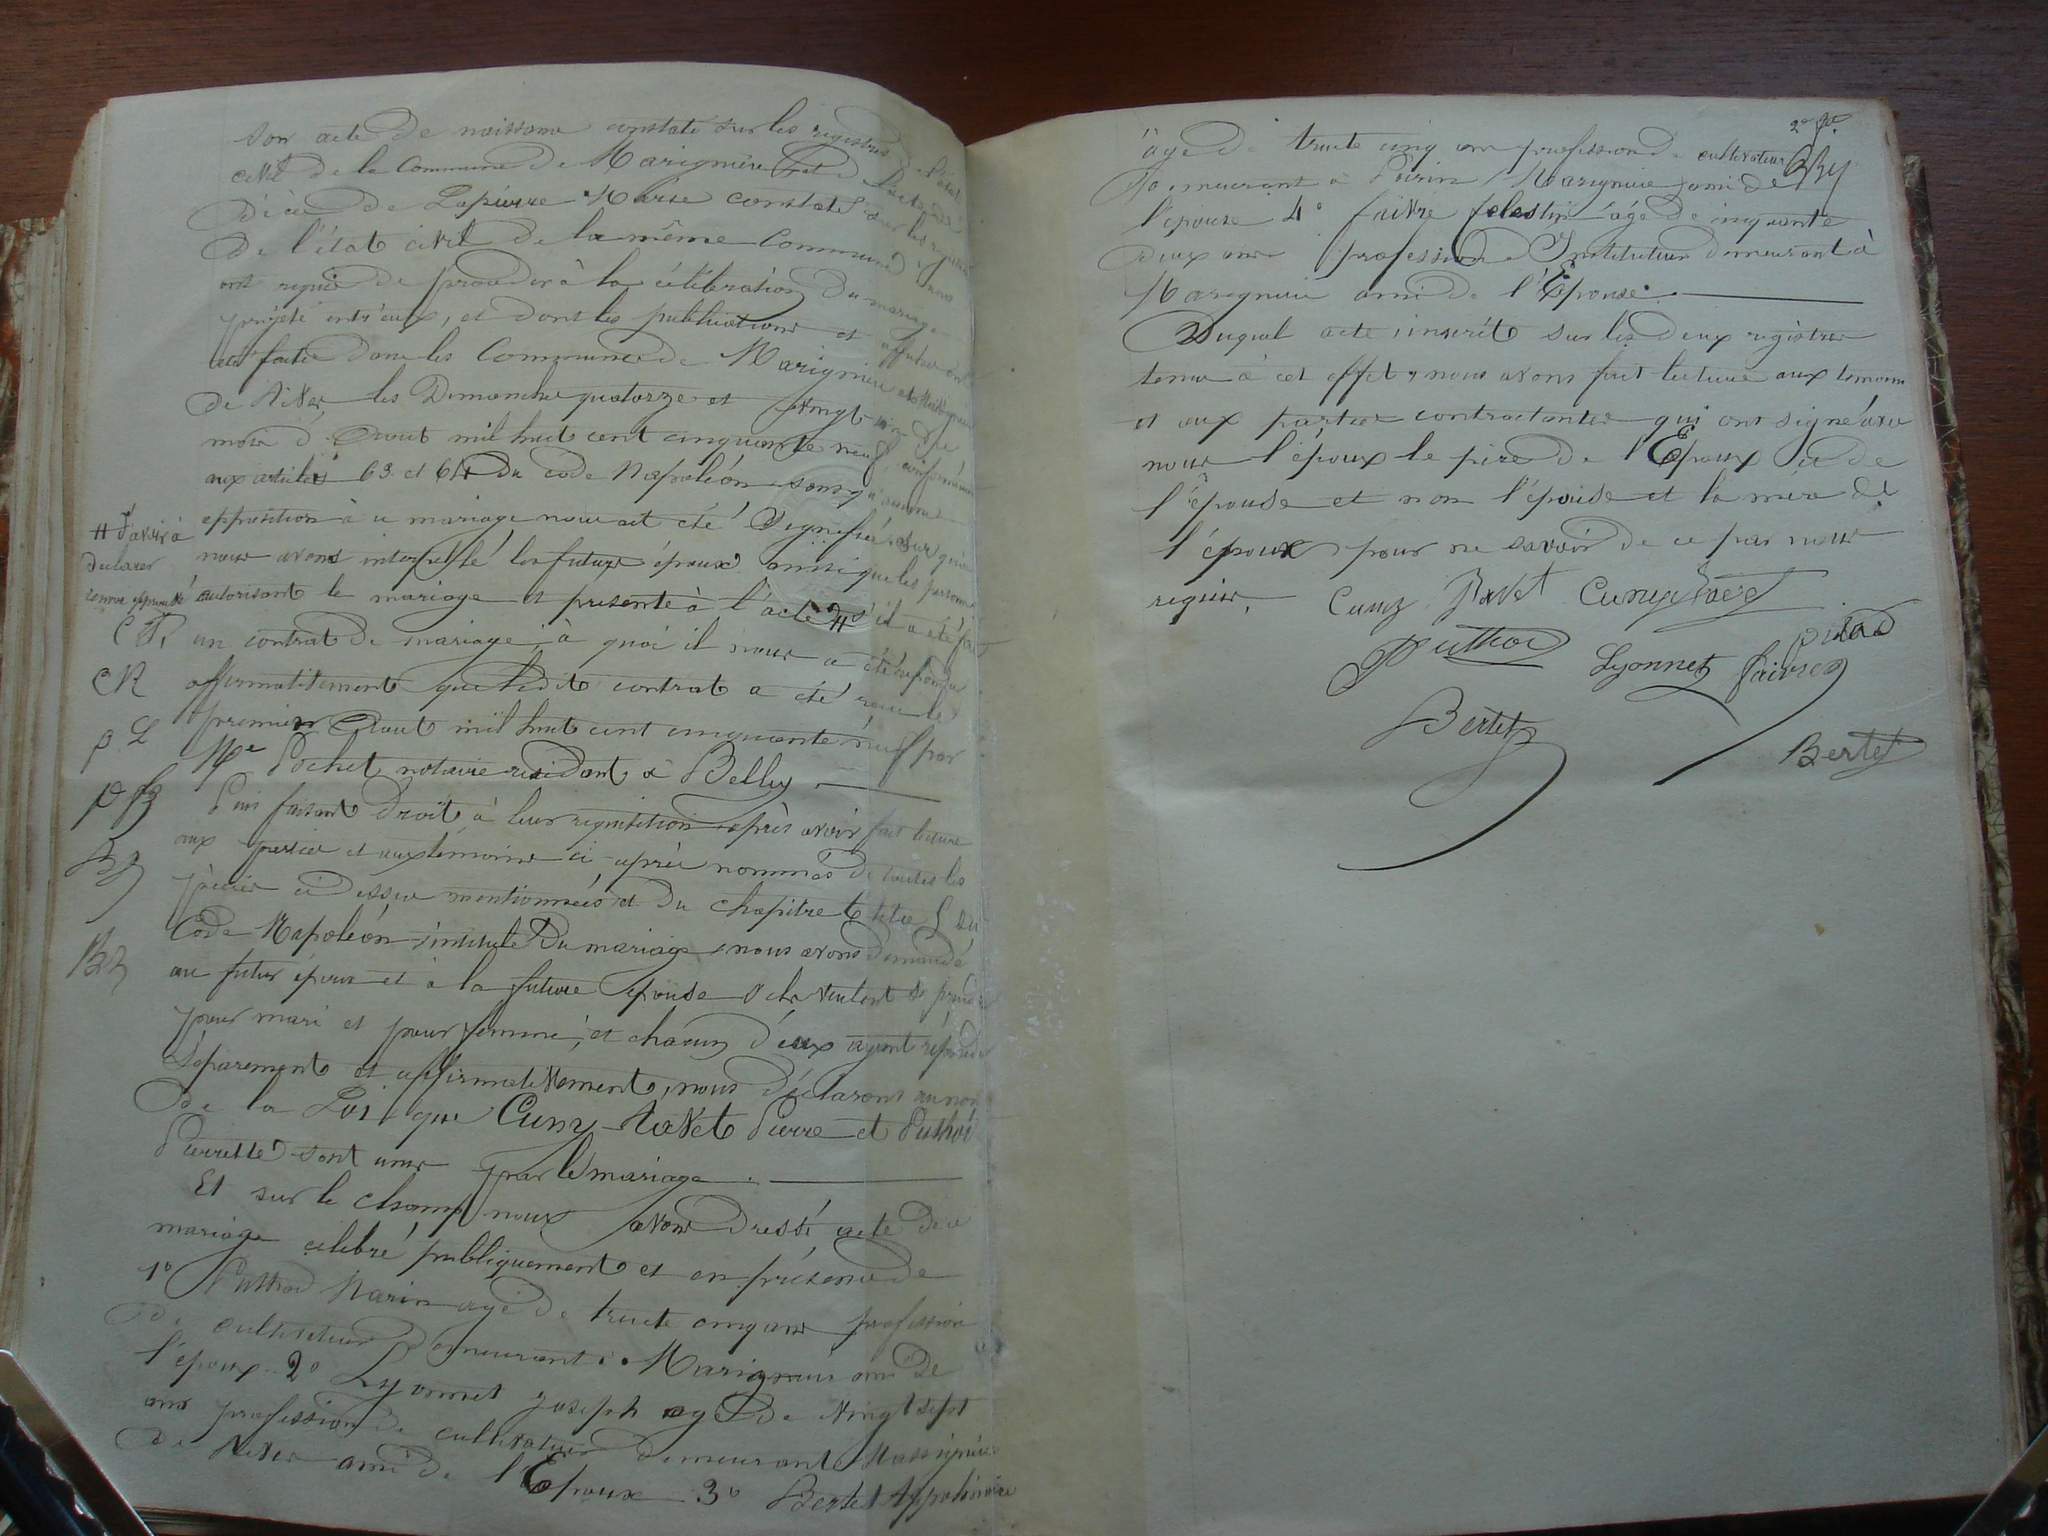 son acte de naissance constaté sur les registres de l'état
civil de la Commune de Marignieu et de l'acte de
décès de Lapierre Marie constaté sur les registres
de l'état civil de la même Commune nous
ont requis de procéder à la célébration du mariage
projeté entr'eux, et dont les publications et affiches ont
été faites dans les Communes de Marignieu et Massignieu
de Rives, les Dimanches quatorze et vingt-un du
mois d'Aout mil huit cent cinquante neuf, conformément
aux articles 63 et 64 du code Napoléon sans qu'aucune
opposition à ce mariage nous ait été signifiée. Sur quoi
nous avons interpellé les futurs époux ainsi que les personnes
autorisant le mariage et présente à l'acte # s'il a été fait
un contrat de mariage, à quoi il nous a été répondu
affirmativement que ledit contrat a été reçu le
premier Aout mil huit cent cinquante neuf par
Me Pochet notaire résidant à Belley
Puis faisant droit à leur réquisition après avoir fait lecture
aux parties et aux témoins ci-après nommés de toutes les
pièces ci dessus mentionnées et du chapitre 6 titre 5 du
Code Napoléon, intitulé Du mariage, nous avons demandé
au futur époux et à la future épouse s'ils veulent se prendre
pour mari et pour femme; et chacun d'eux ayant répondu
séparement et affirmativement, nous déclarons au nom
de la Loi que Cuny-Ravet Pierre et Puthod
Pierrette sont unis par le mariage.
Et sur le champ nous avons dressé acte de ce
mariage célébré publiquement et en présence de
1° Puthod Marin agé de trente cinq ans profession
de cultivateur demeurant à Marignieu ami de
l'époux 2° Lyonnet Joseph agé de vingt sept
ans profession de cultivateur demeurant Massignieu
de Rives ami de l'Epoux 3° Bertet Appolinaire
# d'avoir à
déclarer
C R
C R
p L
p f
B
B
2e fe
âgé de trente cinq ans profession de cultivateur
demeurant à Poirin Marignieu ami de
l'épouse 4° faivre félestin âgé de cinquante
deux ans profession d'Instituteur demeurant à
Marignieu ami de l'Epouse.
Duquel acte, inscrit sur les deux registres
tenus à cet effet, nous avons fait lecture aux temoins
et aux parties contractantes qui ont signé avec
nous l'époux le père de l'Epoux et de
l'épouse et non l'épouse et la mère de
l'époux, pour ne savoir de ce par nous
requis.
Cuny Ravet Cuny Ravet
Puthod Lyonnet faivre
Bertet
Bertet